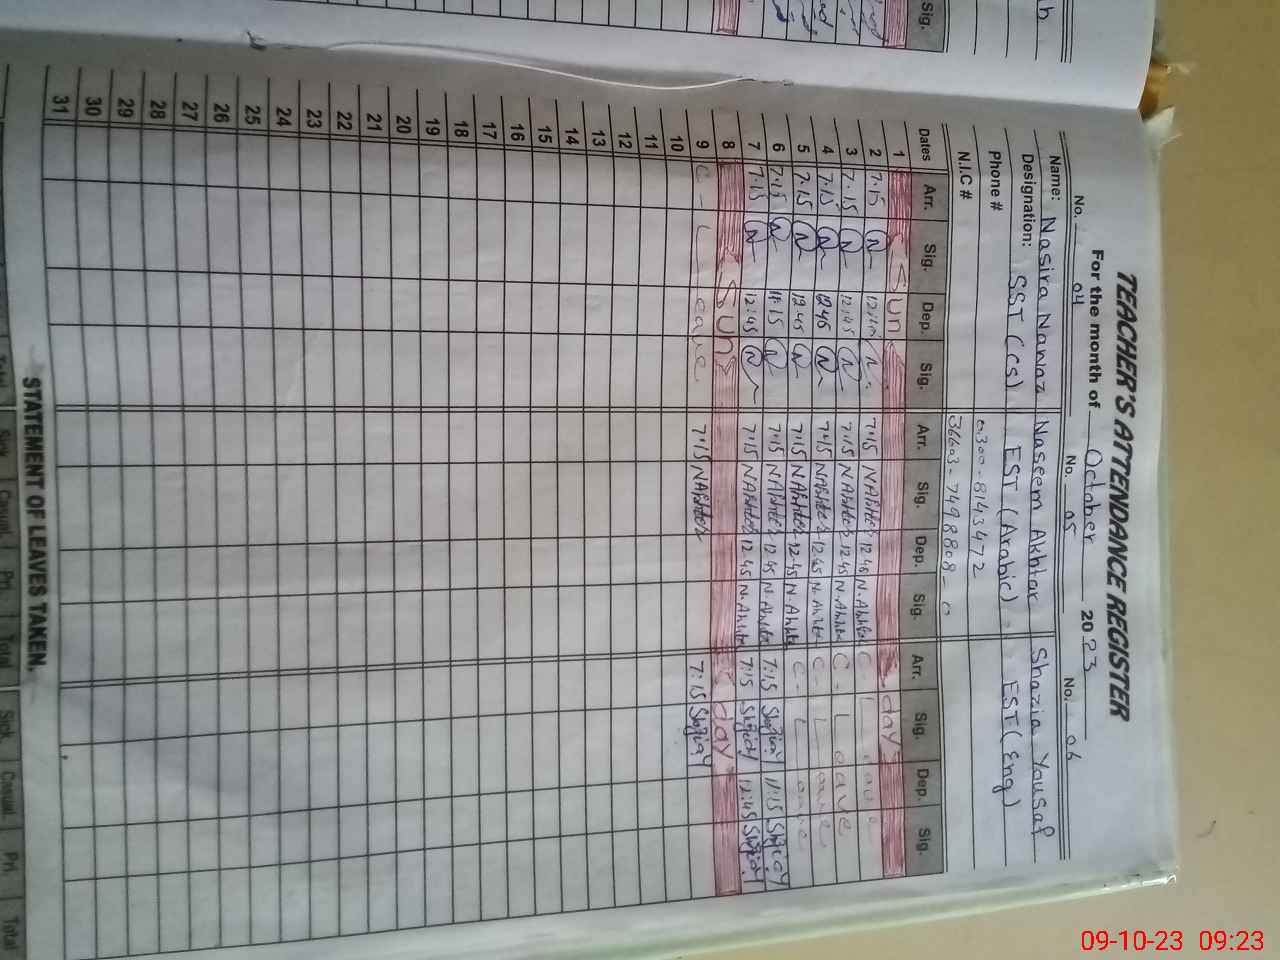 TEACHER'S ATTENDANCE REGISTER
For the month of October 2023
No. 04 No. 05 No. 06
Name: Nasira Nawaz Naseem Akhtar Shazia Yousaf
Designation: SST (CS) EST (Arabic) EST (Eng)
Phone # 0300-8143472
N.I.C # 36603-7498808-0
Dates Arr. Sig. Dep. Sig. Arr. Sig. Dep. Sig. Arr. Sig. Dep. Sig.
1 Sun day
2 7.15 N 12:45 N 7:15 NAkhter 12.45 N.Akhter C - Leave
3 7.15 N 12:45 N 7:15 NAkhter 12.45 N.Akhter C - Leave
4 7.15 N 12:45 N 7:15 NAkhter 12.45 N.Akhter C - Leave
5 7.15 N 12:45 N 7:15 NAkhter 12.45 N.Akhter C - Leave
6 7.15 N 11:15 N 7:15 NAkhter 12.45 N.Akhter 7:15 Shazia Y 11:15 Shazia Y
7 7:15 N 12:45 N 7:15 NAkhter 12.45 N.Akhter 7:15 Shazia Y 12:45 Shazia Y
8 Sun day
9 C - Leave 7:15 NAkhter 7:15 Shazia Y
10
11
12
13
14
15
16
17
18
19
20
21
22
23
24
25
26
27
28
29
30
31
STATEMENT OF LEAVES TAKEN.
Total Sick Casual Pri Total Sick Casual Pri Total
Sig.
09-10-23 09:23